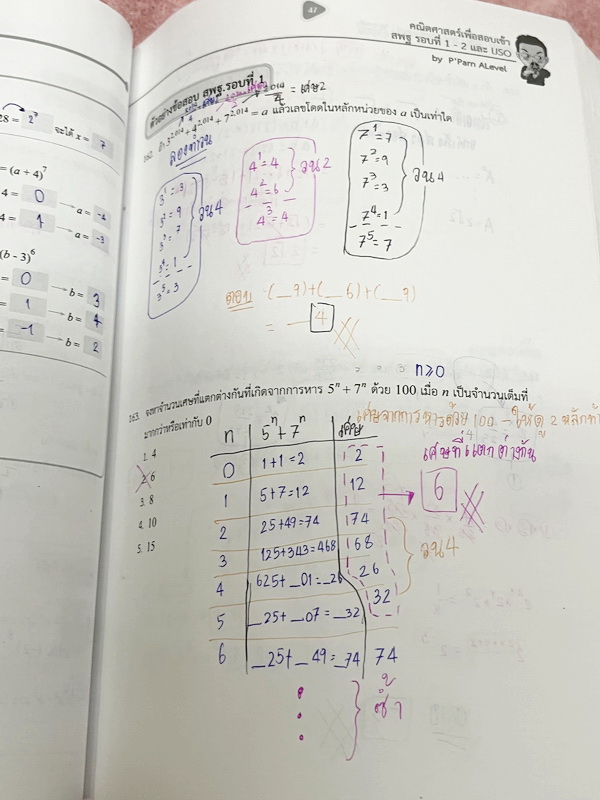 47
คณิตศาสตร์เพื่อสอบเข้า
สพฐ รอบที่ 1 - 2 และ USO
by P'Pam ALevel
28 = 2⁷ จะได้ x = 7
= (a + 4)⁷
4 = 0 → a = -4
4 = 1 → a = -3
(b - 3)⁶
= 0 → b = 3
= 1 → b = 4
= -1 → b = 2
ตัวอย่างข้อสอบ สพฐ.รอบที่ 1
= เศษ 2
162. ถ้า 3^2,014 + 4^2,014 + 7^2,014 = a แล้วเลขโดดในหลักหน่วยของ a เป็นเท่าใด
3¹ = 3
3² = 9
3³ = 7
3⁴ = 1
3⁵ = 3
วน 4
4¹ = 4
4² = 6
4³ = 4
วน 2
7¹ = 7
7² = 9
7³ = 3
7⁴ = 1
7⁵ = 7
วน 4
ตอบ (_9) + (_6) + (_9)
= _4
n ≥ 0
163. จงหาจำนวนเศษที่แตกต่างกันที่เกิดจากการหาร 5ⁿ + 7ⁿ ด้วย 100 เมื่อ n เป็นจำนวนเต็มที่
มากกว่าหรือเท่ากับ 0
1. 4
2. 6
3. 8
4. 10
5. 15
เศษจากการหารด้วย 100 → ให้ดู 2 หลักท้าย
n 5ⁿ + 7ⁿ เศษ
0 1+1 = 2 2
1 5+7 = 12 12
2 25+49 = 74 74
3 125+343 = 468 68
4 625+_01 = _26 26
5 _25+_07 = _32 32
6 _25+_49 = _74 74
เศษที่แตกต่างกัน
6
วน 4
ซ้ำ